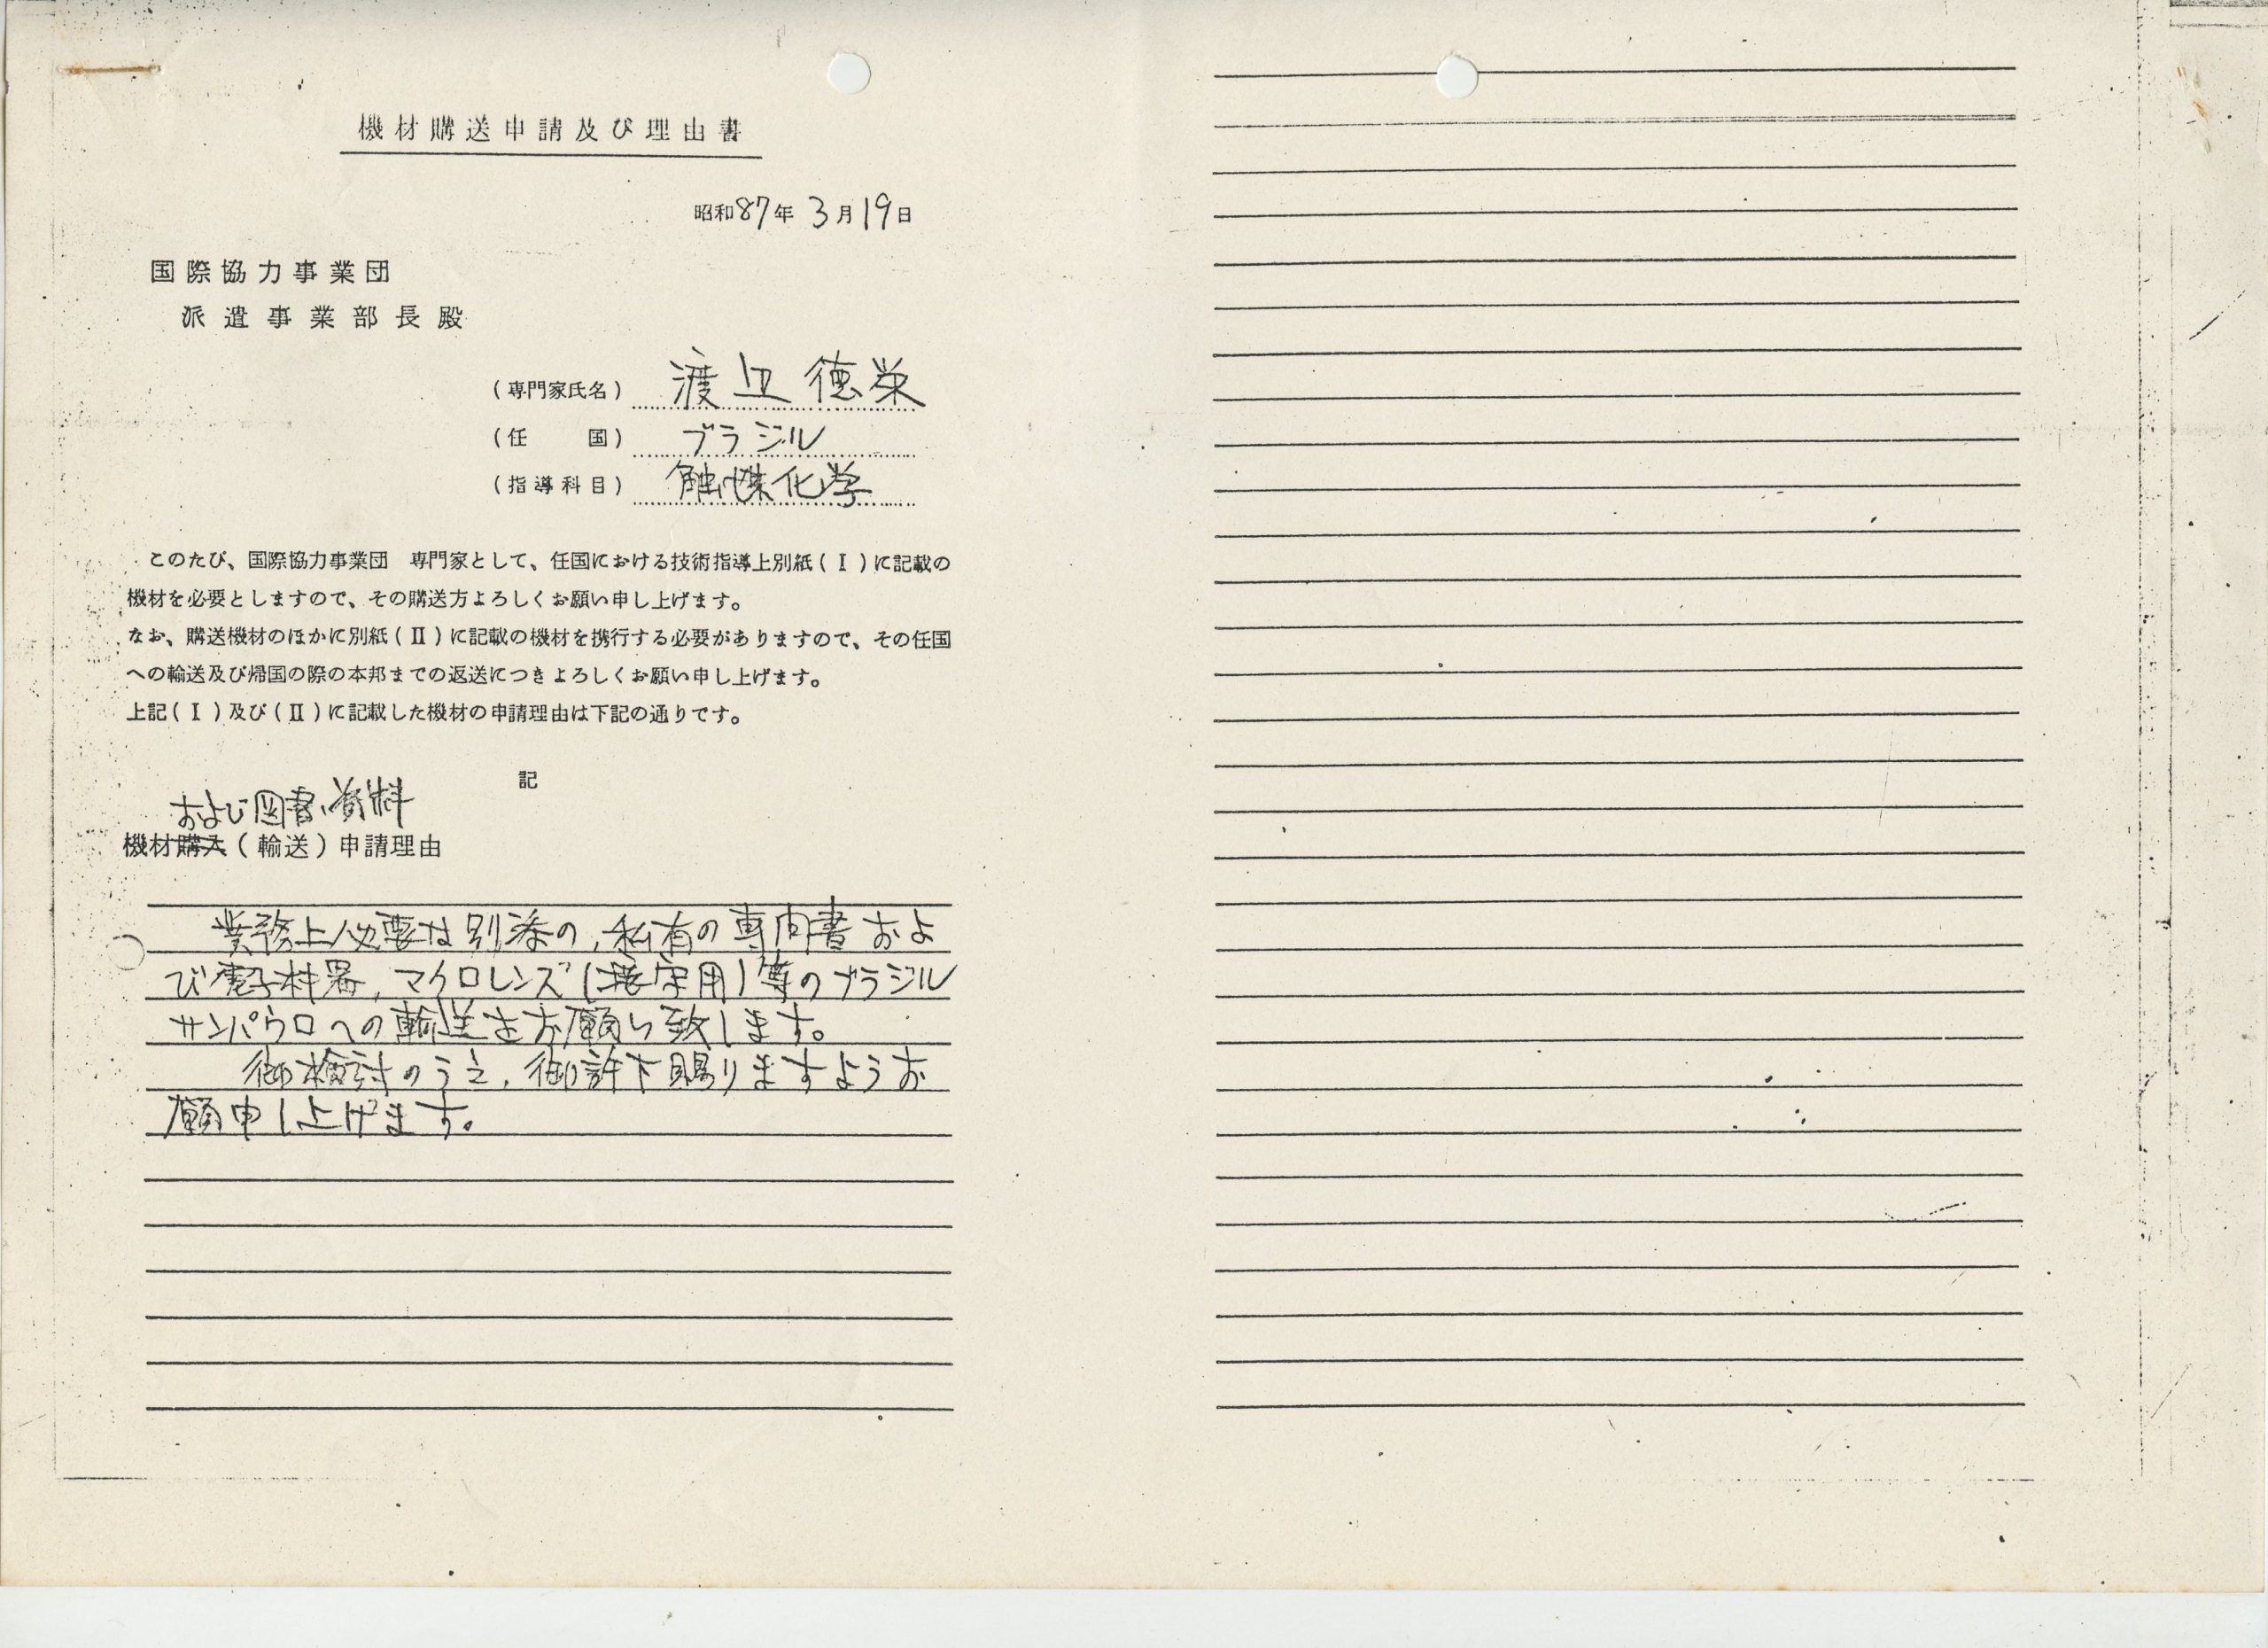 機材購送申請及び理由書
昭和87年 3月19日
国際協力事業団
派遣事業部長殿
(専門家氏名) 渡辺 徳栄
(任 国) ブラジル
(指導科目) 触媒化学
このたび、国際協力事業団 専門家として、任国における技術指導上別紙(Ⅰ)に記載の
機材を必要としますので、その購送方よろしくお願い申し上げます。
なお、購送機材のほかに別紙(Ⅱ)に記載の機材を携行する必要がありますので、その任国
への輸送及び帰国の際の本邦までの返送につきよろしくお願い申し上げます。
上記(Ⅰ)及び(Ⅱ)に記載した機材の申請理由は下記の通りです。
記
および図書、資料
機材購入(輸送)申請理由
業務上必要な別添の、私有の専門書およ
び電子機器, マクロレンズ(接写用)等のブラジル
サンパウロへの輸送をお願い致します。
御検討のうえ, 御許下賜りますようお
願申し上げます。